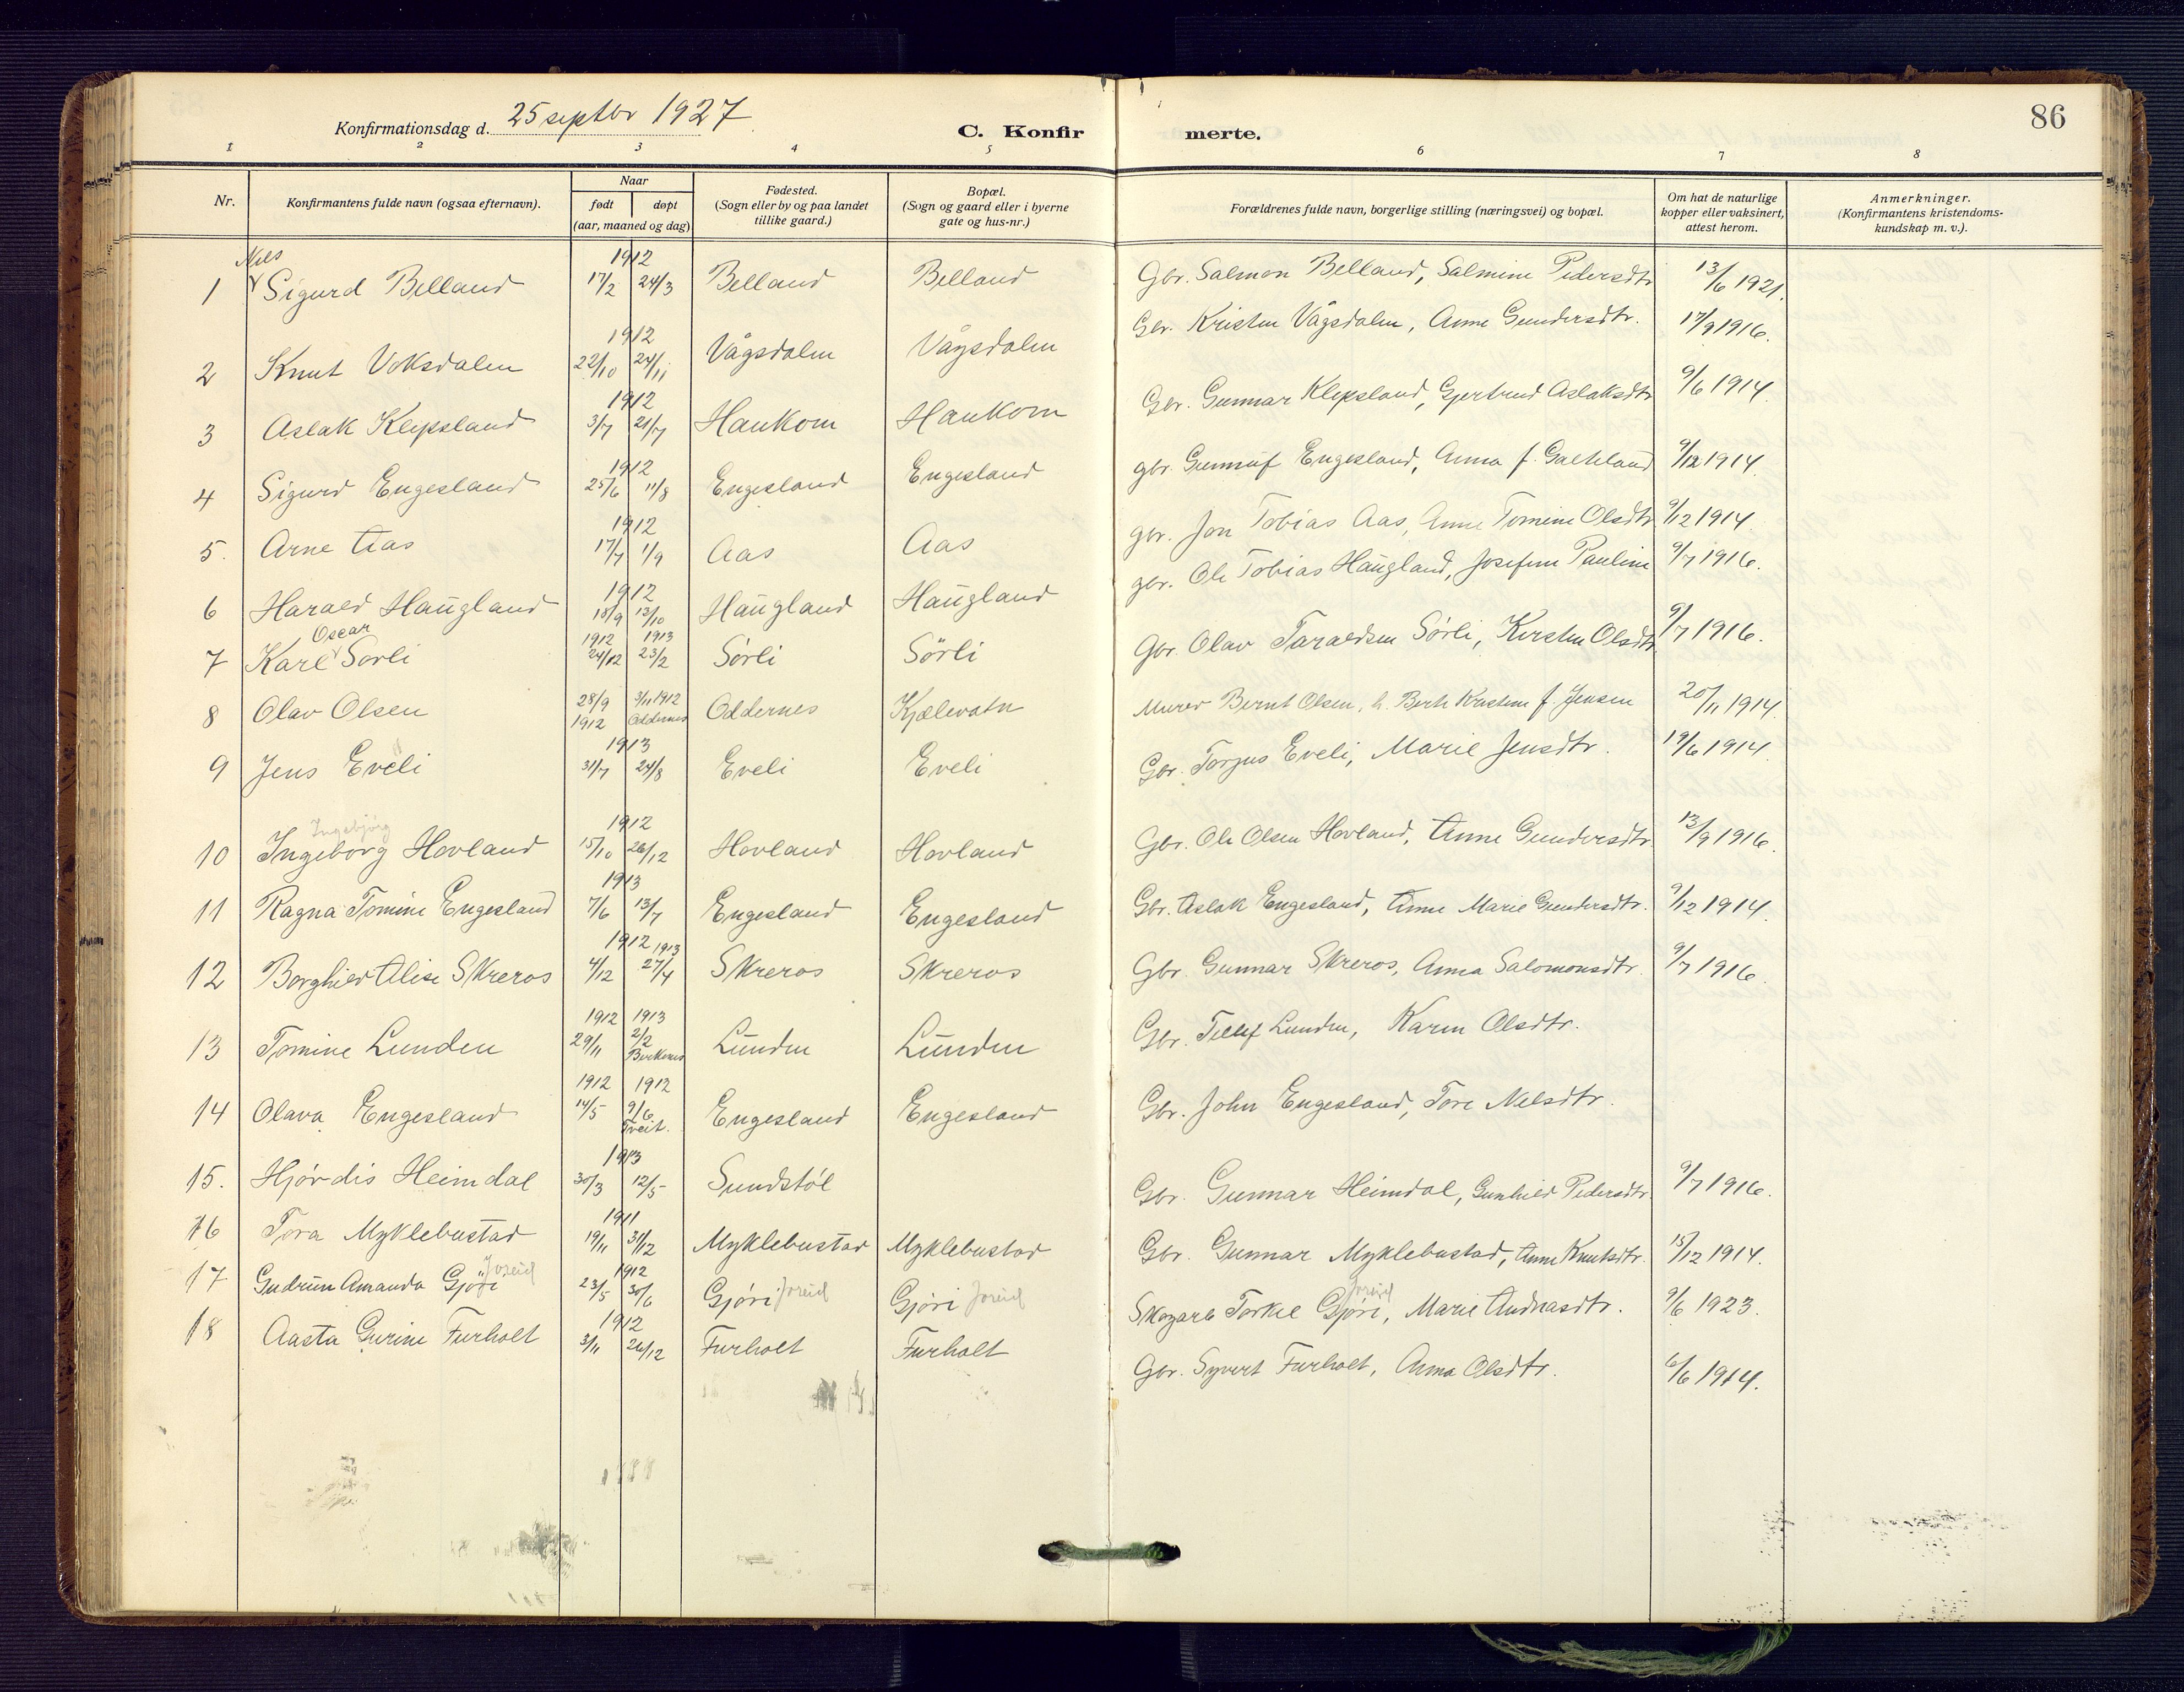 Konfirmationsdag d. 25 septbr 1927
C. Konfir merte.
86
1 2 3 4 5 6 7 8
Nr.
Konfirmantens fulde navn (ogsaa efternavn).
Naar
født døpt
(aar, maaned og dag)
Fødested.
(Sogn eller by og paa landet
tillike gaard.)
Bopæl.
(Sogn og gaard eller i byerne
gate og hus-nr.)
Forældrenes fulde navn, borgerlige stilling (næringsvei) og bopæl.
Om hat de naturlige
kopper eller vaksinert,
attest herom.
Anmerkninger.
(Konfirmantens kristendoms-
kundskap m. v.).
Nils 1912
1 Sigurd Belland 17/2 24/3 Belland Belland Gbr. Salmon Belland, Salmine Pedersdtr 13/6 1921.
1912
2 Knut Voksdalen 22/10 24/11 Vågsdalen Vågsdalen Gbr. Kristen Vågsdalen, Anne Gundersdtr. 17/9 1916.
1912
3 Aslak Klepsland 3/7 21/7 Haukom Haukom Gbr. Gunnar Klepsland, Gjertrud Aslaksdtr 9/6 1914.
1912
4 Sigurd Engesland 25/6 11/8 Engesland Engesland gbr. Gunnuf Engesland, Anna f. Gakkeland 9/12 1914.
1912
5. Arne Aas 17/7 1/9 Aas Aas gbr. Jon Tobias Aas, Anne Tomine Olsdtr 9/12 1914.
1912
6 Harald Haugland 18/9 13/10 Haugland Haugland gbr. Ole Tobias Haugland, Josefine Pauline 9/7 1916.
Oscar 1912 1913
7 Karl Sørli 24/12 23/2 Sørli Sørli Gbr. Olav Taraldsen Sørli, Kirsten Olsdtr 9/7 1916.
8 Olav Olsen 28/9 1912 3/11 1912 Oddernes Oddernes Kjælevatn Murer Bernt Olsen, h. Berte Kristine f. Jensen 20/11 1914.
1913
9 Jens Eveli 31/7 24/8 Eveli Eveli Gbr. Torjus Eveli, Marie Jensdtr. 19/6 1914.
Ingebjörg 1912
10 Ingeborg Hovland 15/10 26/12 Hovland Hovland Gbr. Ole Olsen Hovland, Anne Gundersdtr. 13/9 1916.
1913
11 Ragna Tomine Engesland 7/6 13/7 Engesland Engesland Gbr. Aslak Engesland, Anne Marie Gundersdtr. 9/12 1914.
1912 1913
12 Borghild Alise Skreros 4/12 27/4 Skreros Skreros Gbr. Gunnar Skreros, Anna Salomonsdtr. 9/7 1916.
1912 1913
13 Tomine Lunden 29/11 2/2 Birkenes Lunden Lunden Gbr. Tellef Lunden, Karen Olsdtr.
1912 1912
14 Olava Engesland 14/5 9/6 Tveit. Engesland Engesland Gbr. John Engesland, Tore Nelsdtr.
1913
15. Hjørdis Heimdal 30/3 12/5 Sundstøl Gbr. Gunnar Heimdal, Gunhild Pedersdtr. 9/7 1916.
1911
16 Tora Myklebustad 19/11 31/12 Myklebustad Myklebustad Gbr. Gunnar Myklebustad, Anne Knutsdtr. 15/12 1914.
Joreid 1912
17 Gudrun Amanda Gjøri 23/5 30/6 Gjøri Joreid Gjøri Joreid Skogarb Torkel Gjøri, Marie Andreasdtr. 9/6 1923.
Joreid
1912
18 Aasta Gurine Furholt 3/11 26/12 Furholt Furholt Gbr. Syvert Furholt, Anna Olsdtr. 6/6 1914.